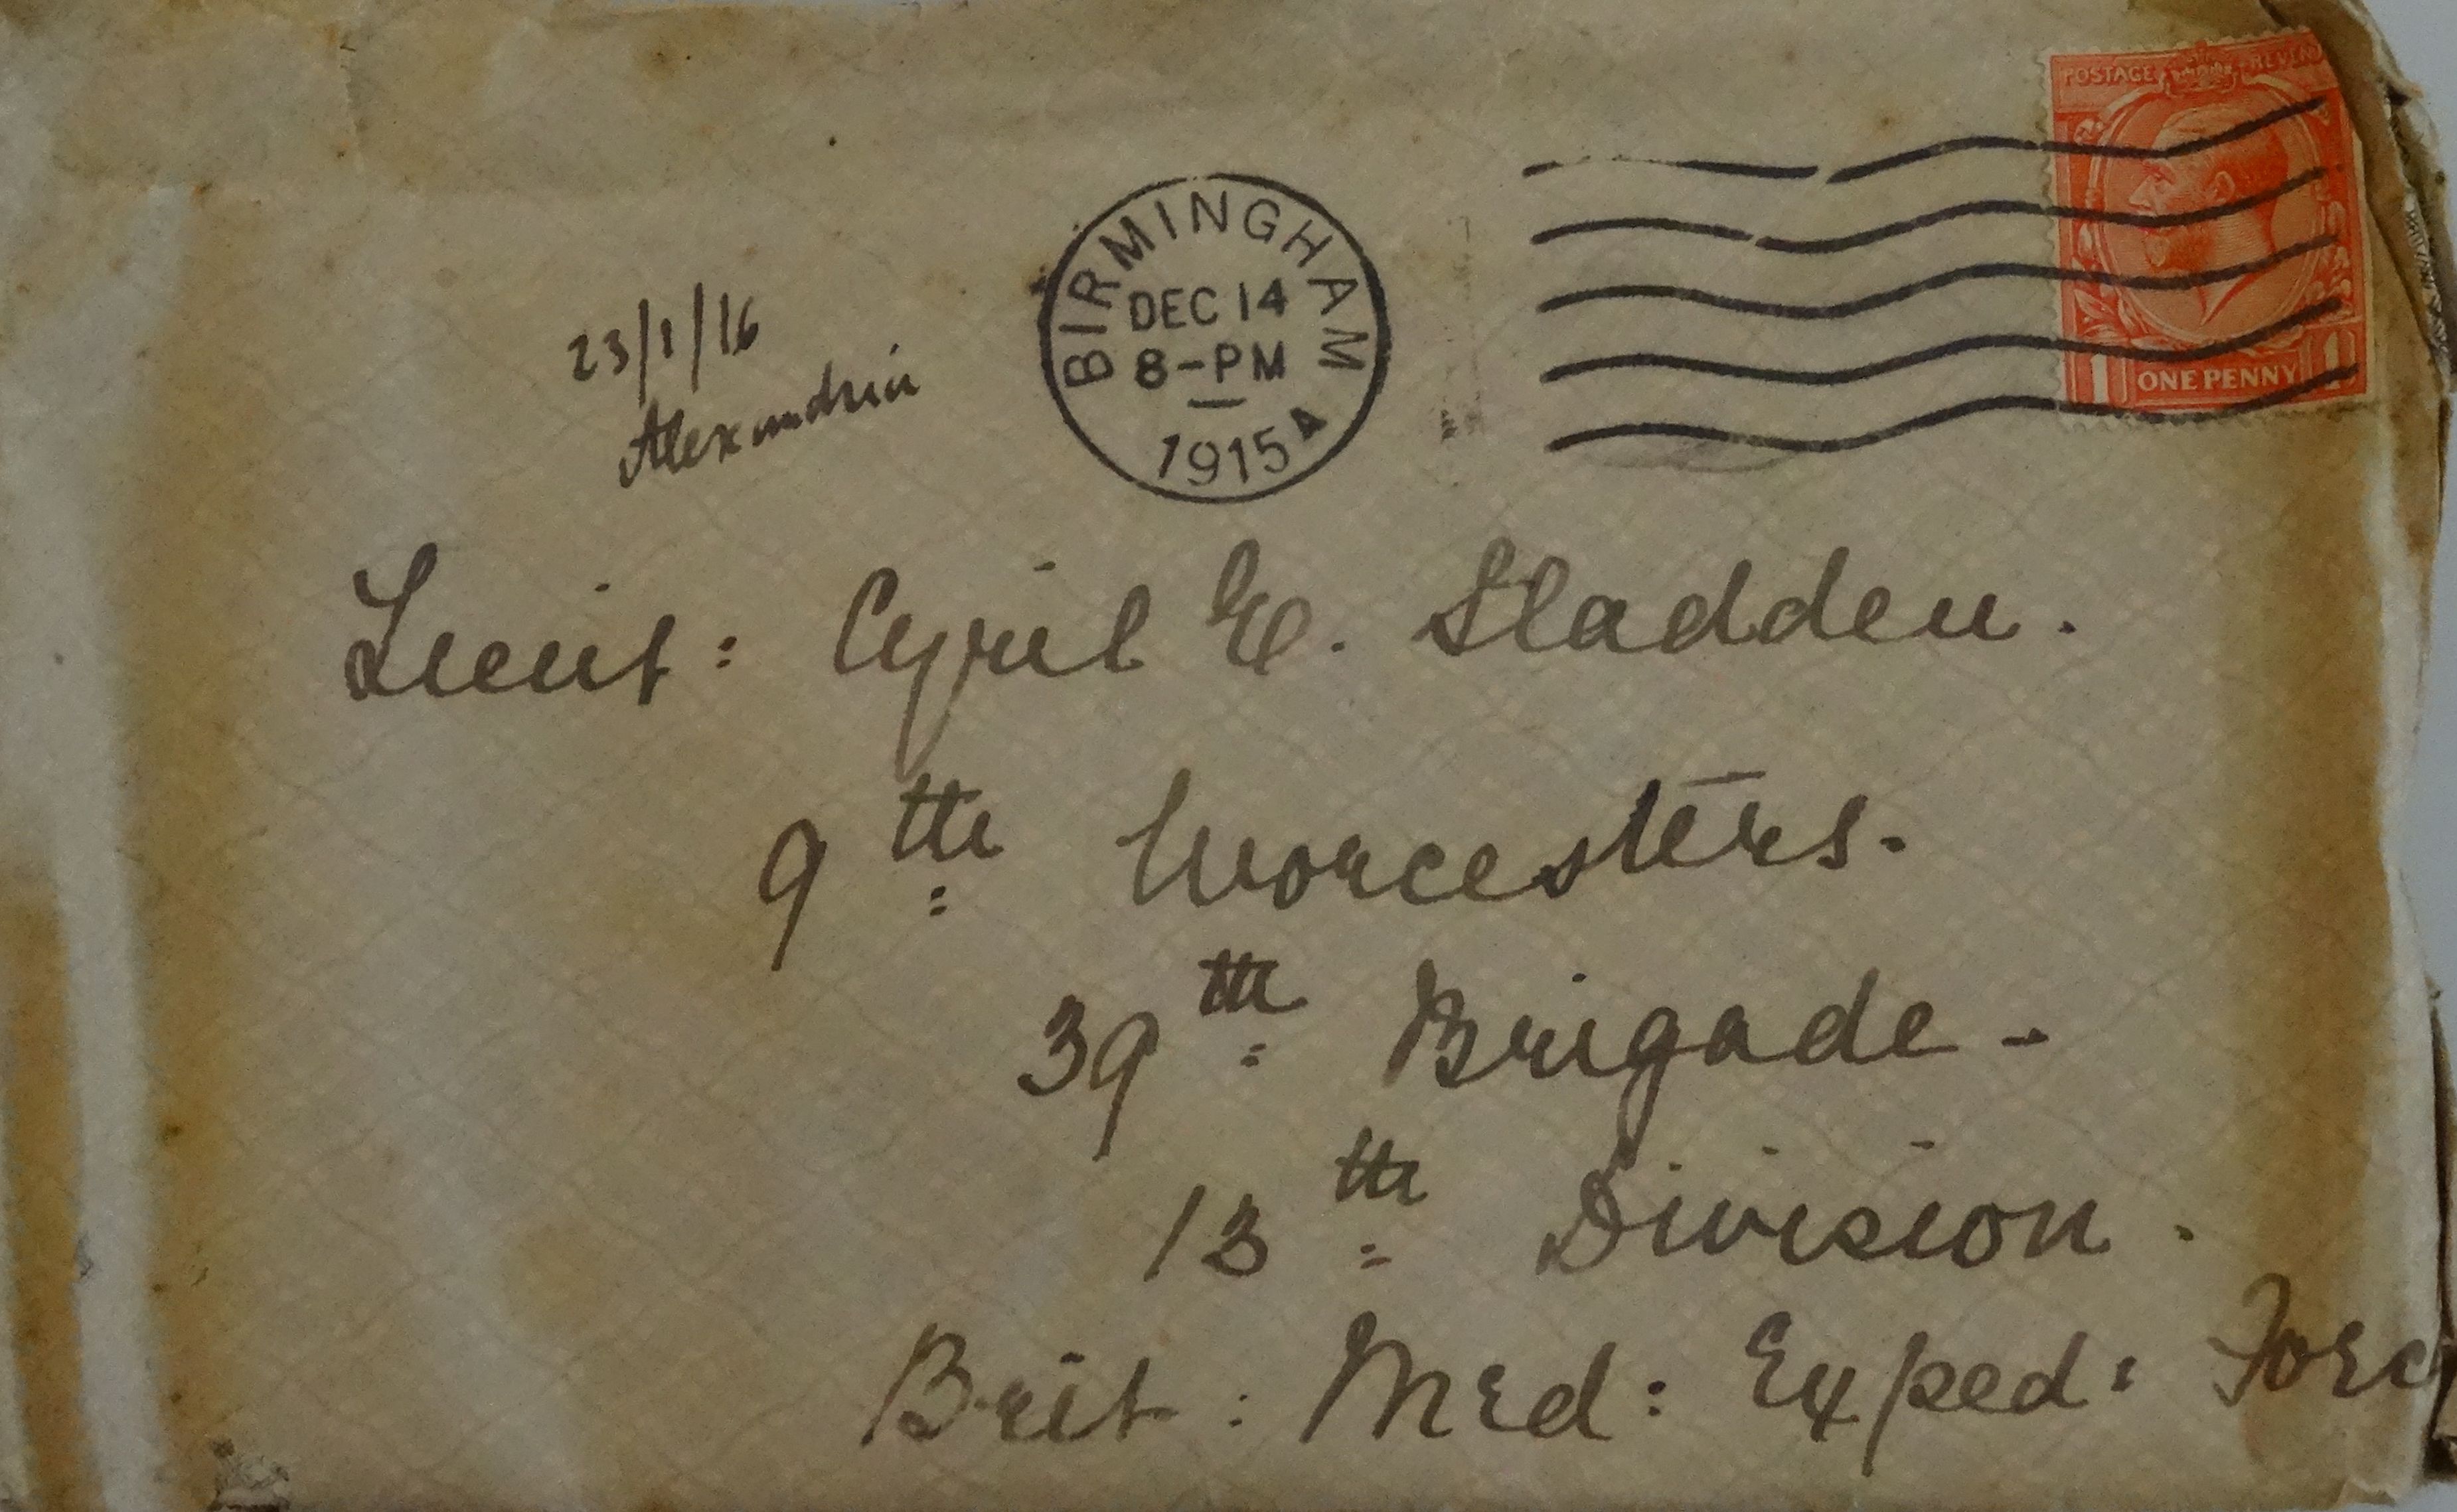 POSTAGE REVENU
1 ONE PENNY 1
BIRMINGHAM
DEC 14
8-PM
1915 A
23/1/16
Alexandria
Lieut: Cyril E. Sladden.
9th Worcesters.
39th Brigade -
13th Division.
Brit: Med: Exped: Forc